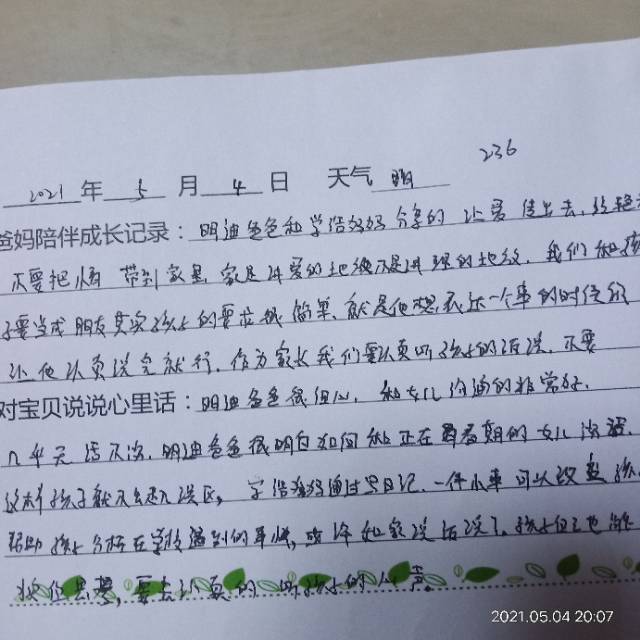 236
2021 年 5 月 4 日 天气 晴
爸妈陪伴成长记录：明迪爸爸和学浩妈妈分享的 让爱 传出去，
不要把情 带到家里 家是讲爱的地方不是讲理的地方，我们和孩
子要当成朋友其实孩子的要求很简单，就是他想表达一个事的时候
让他认真说完就行，作为家长我们要认真听孩子的话说，不要
对宝贝说说心里话：明迪爸爸很细心，和女儿沟通的非常好，
明迪爸爸很明白如何和正在青春期的女儿沟通，
这样孩子就不会进入误区，学浩妈妈通过写日记，一件小事可以改变孩
帮助孩子分析在学校遇到的事情，孩子
换位思考，要去认真的听孩子的心声。
2021.05.04 20:07